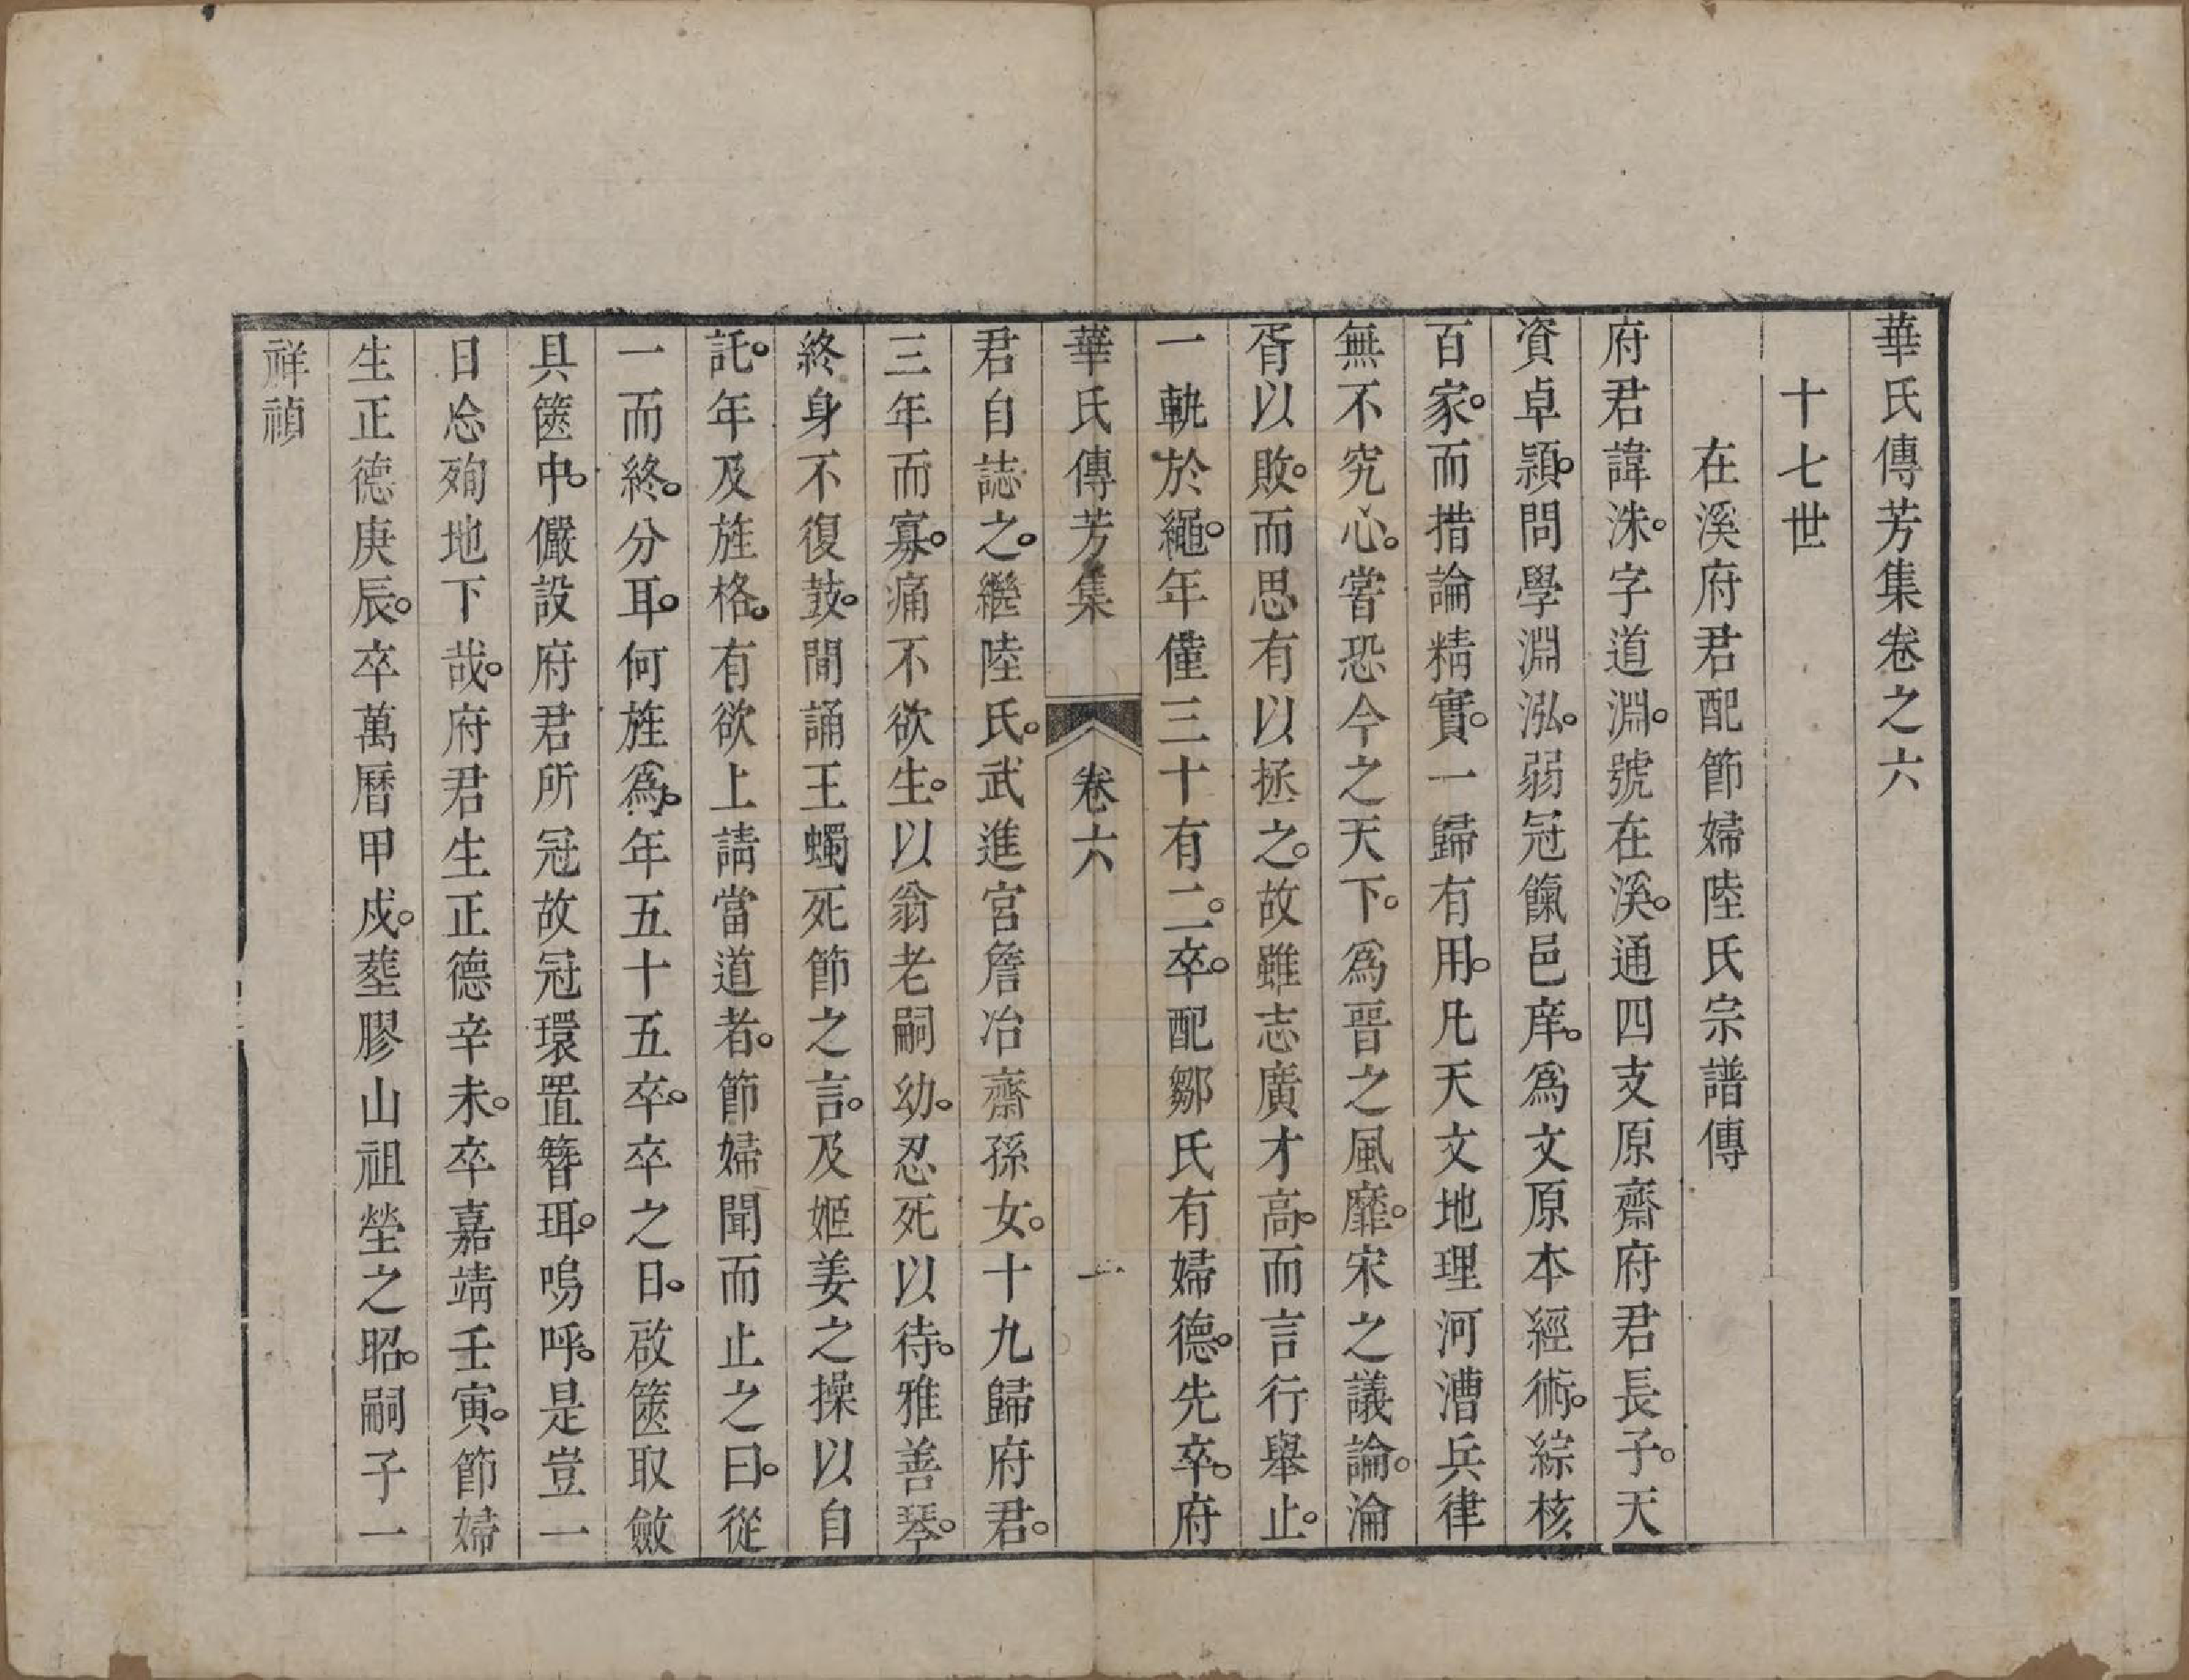 華氏傳芳集卷之六
十七世
在溪府君配節婦陸氏宗譜傳
府君諱洙。字道淵。號在溪。通四支原齋府君長子。天
資卓穎。問學淵泓。弱冠餼邑庠。爲文原本經術。綜核
百家。而措論精實。一歸有用。凡天文地理河漕兵律
無不究心。嘗恐今之天下。爲晉之風靡。宋之議論。淪
胥以敗。而思有以拯之。故雖志廣才高。而言行舉止。
一軌於繩。年僅三十有二。卒。配鄒氏有婦德。先卒。府
華氏傳芳集
卷六
一
君自誌之。繼陸氏。武進宮詹冶齋孫女。十九歸府君。
三年而寡。痛不欲生。以翁老嗣幼。忍死以待。雅善琴。
終身不復鼓。間誦王蠋死節之言。及姬姜之操以自
託。年及旌格。有欲上請當道者。節婦聞而止之曰。從
一而終。分耳。何旌爲。年五十五卒。卒之日。啟篋取斂
具篋中。儼設府君所冠故冠環置簪珥。嗚呼。是豈一
日忘殉地下哉。府君生正德辛未。卒嘉靖壬寅。節婦
生正德庚辰。卒萬曆甲戍。塟膠山祖塋之昭。嗣子一
祥禎